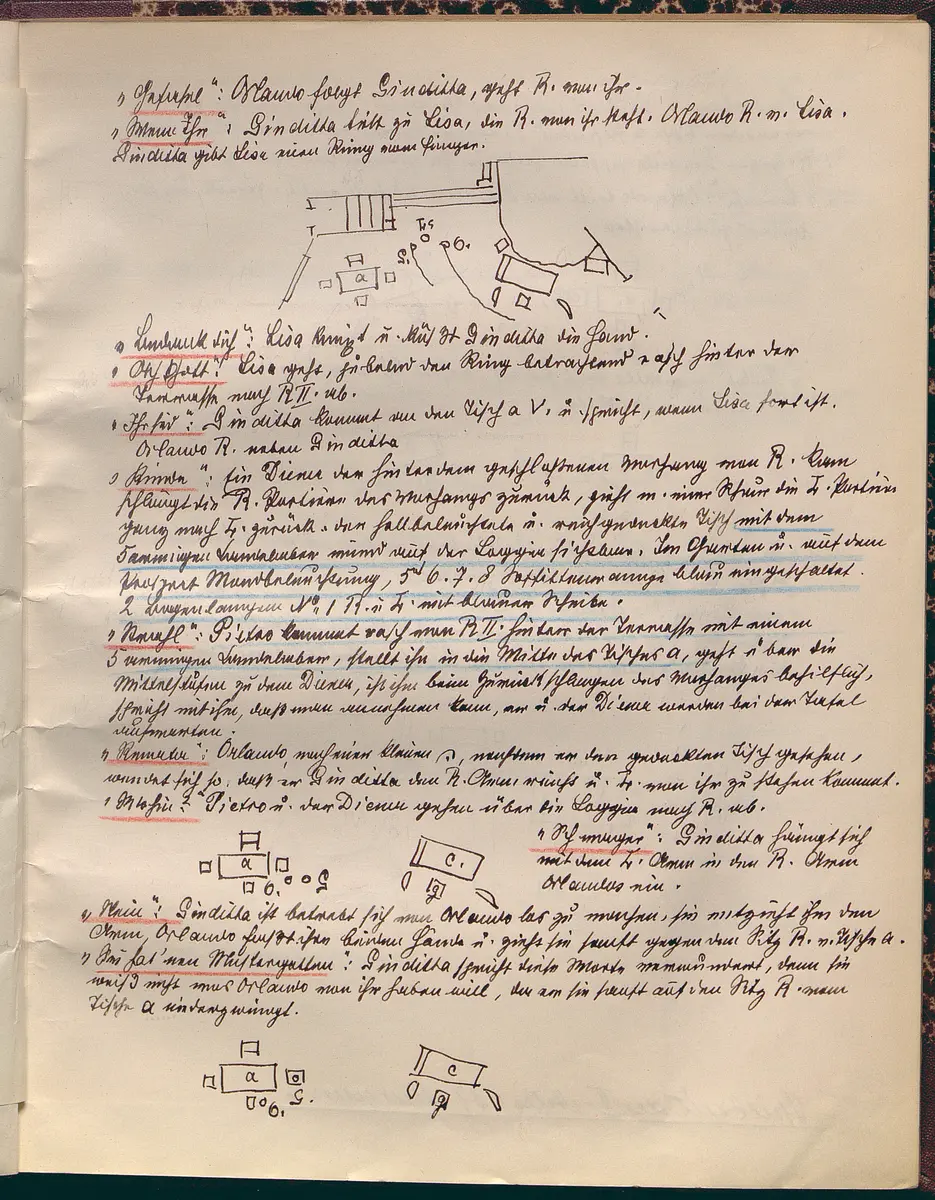 „Gefasel“: Orlando folgt Ginditta, geht R. von ihr.
„Wenn Ihr“: Ginditta tritt zu Lisa, die R. von ihr steht. Orlando R. v. Lisa.
Ginditta gibt Lisa einen Ring vom Finger.
L.
G. O.
a
„Bedank dich“: Lisa knixt u. küsst Ginditta die Hand.
„Oh Gott“: Lisa geht, jubelnd den Ring betrachtend rasch hinter der
Terrasse nach R II. ab.
„Ihr seid“: Ginditta kommt an den Tisch a V. u. spricht, wenn Lisa fort ist.
Orlando R. neben Ginditta
Ein Diener der hinter dem geschlossenen Vorhang von R. kam
schlägt die R. Portière des Vorhangs zurück, zieht m. einer Schnur die L. Portière
ganz nach L. zurück. den hellbeleuchteten u. reichgedeckte Tisch mit dem
5 armigen Kandelaber wird auf der Loggia sichtbar. Im Garten u. auf dem
Prospect Mondbeleuchtung, 5. 6. 7. 8 Soffittenrampe blau eingeschaltet.
2 Bogenlampen No. 1 R. u. L. mit blauer Scheibe.
Pietro kommt rasch von R II. hinter der Terrasse mit einem
5 armigen Kandelaber, stellt ihn in die Mitte des Tisches a, geht über die
Mittelstufen zu dem Diener, ist ihm beim Zurückschlagen des Vorhanges behilflich,
spricht mit ihm, daß man annehmen kann, er u. der Diener werden bei der Tafel
aufwarten.
„Renata“: Orlando, nach einer kleinen, nachdem er den gedeckten Tisch gesehen,
wendet sich so, daß er Ginditta den R. Arm reicht u. L. von ihr zu stehen kommt.
„Wohin?“ Pietro u. der Diener gehen über die Loggia nach R. ab.
„Schwager“: Ginditta hängt sich
mit dem L. Arm in den R. Arm
Orlandos ein.
a c.
O. G g
„Nein“: Ginditta ist bestrebt sich von Orlando los zu machen, sie entzieht ihm den
Arm, Orlando faßt ihre beiden Hände u. zieht sie sanft gegen den Sitz R. v. Tische a.
„Sie hat 'nen Mustergatten“: Ginditta spricht diese Worte verwundert, denn sie
weiß nicht was Orlando von ihr haben will, da er sie sanft auf den Sitz R. vom
Tische a niederzwingt.
a c
O. G. g